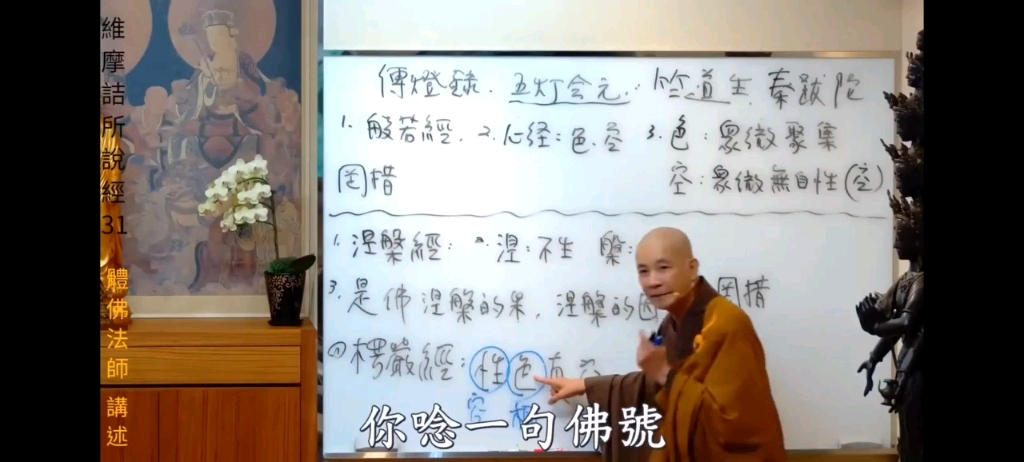 維摩詰所說經31 體佛法師 講述
傳燈錄. 五灯会元. 竺道生. 秦跋陀
1. 般若經. 2. 心経: 色. 空 3. 色: 眾微聚集
罔措 空: 眾微無自性(空)
1. 涅槃經: 2. 涅: 不生 槃:
3. 是佛涅槃的果, 涅槃的因 罔措
④ 楞嚴經: 性色真空
空 相
你唸一句佛號